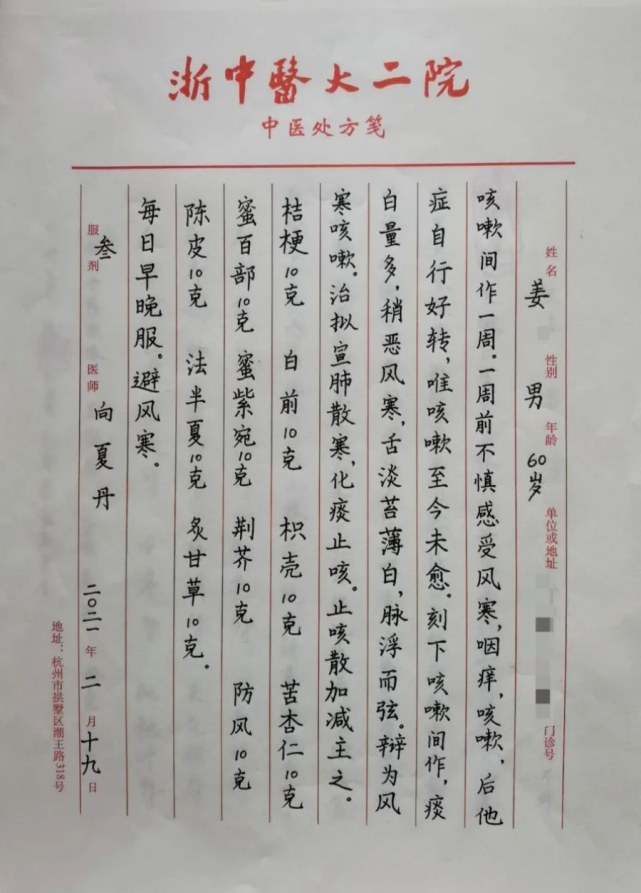 浙中醫大二院
中医处方笺
姓名 姜 性别 男 年龄 60岁 单位或地址 门诊号
咳嗽间作一周。一周前不慎感受风寒，咽痒，咳嗽，后他
症自行好转，唯咳嗽至今未愈。刻下咳嗽间作，痰
白量多，稍恶风寒，舌淡苔薄白，脉浮而弦。辩为风
寒咳嗽。治拟宣肺散寒，化痰止咳。止咳散加减主之。
桔梗10克 白前10克 枳壳10克 苦杏仁10克
蜜百部10克 蜜紫宛10克 荆芥10克 防风10克
陈皮10克 法半夏10克 炙甘草10克。
每日早晚服。避风寒。
服 叁 剂 医师 向夏丹 二〇二一年 二 月十九日
地址：杭州市拱墅区潮王路318号